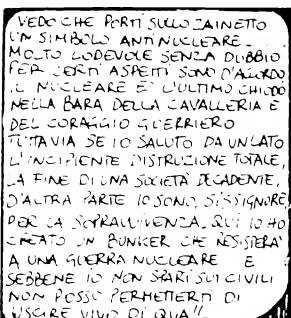 VEDO CHE PORTI SULLO ZAINETTO
UN SIMBOLO ANTINUCLEARE.
MOLTO LODEVOLE SENZA DUBBIO
PER CERTI ASPETTI SONO D'ACCORDO
IL NUCLEARE E' L'ULTIMO CHIODO
NELLA BARA DELLA CAVALLERIA E
DEL CORAGGIO GUERRIERO
TUTTAVIA SE IO SALUTO DA UN LATO
L'INCIPIENTE DISTRUZIONE TOTALE,
LA FINE DI UNA SOCIETÀ DECADENTE,
D'ALTRA PARTE IO SONO, SISSIGNORE,
PER LA SOPRAVVIVENZA. QUI IO HO
CREATO UN BUNKER CHE RESISTERA'
A UNA GUERRA NUCLEARE E
SEBBENE IO NON SPARI SUI CIVILI
NON POSSO PERMETTERTI DI
USCIRE VIVO DI QUA"